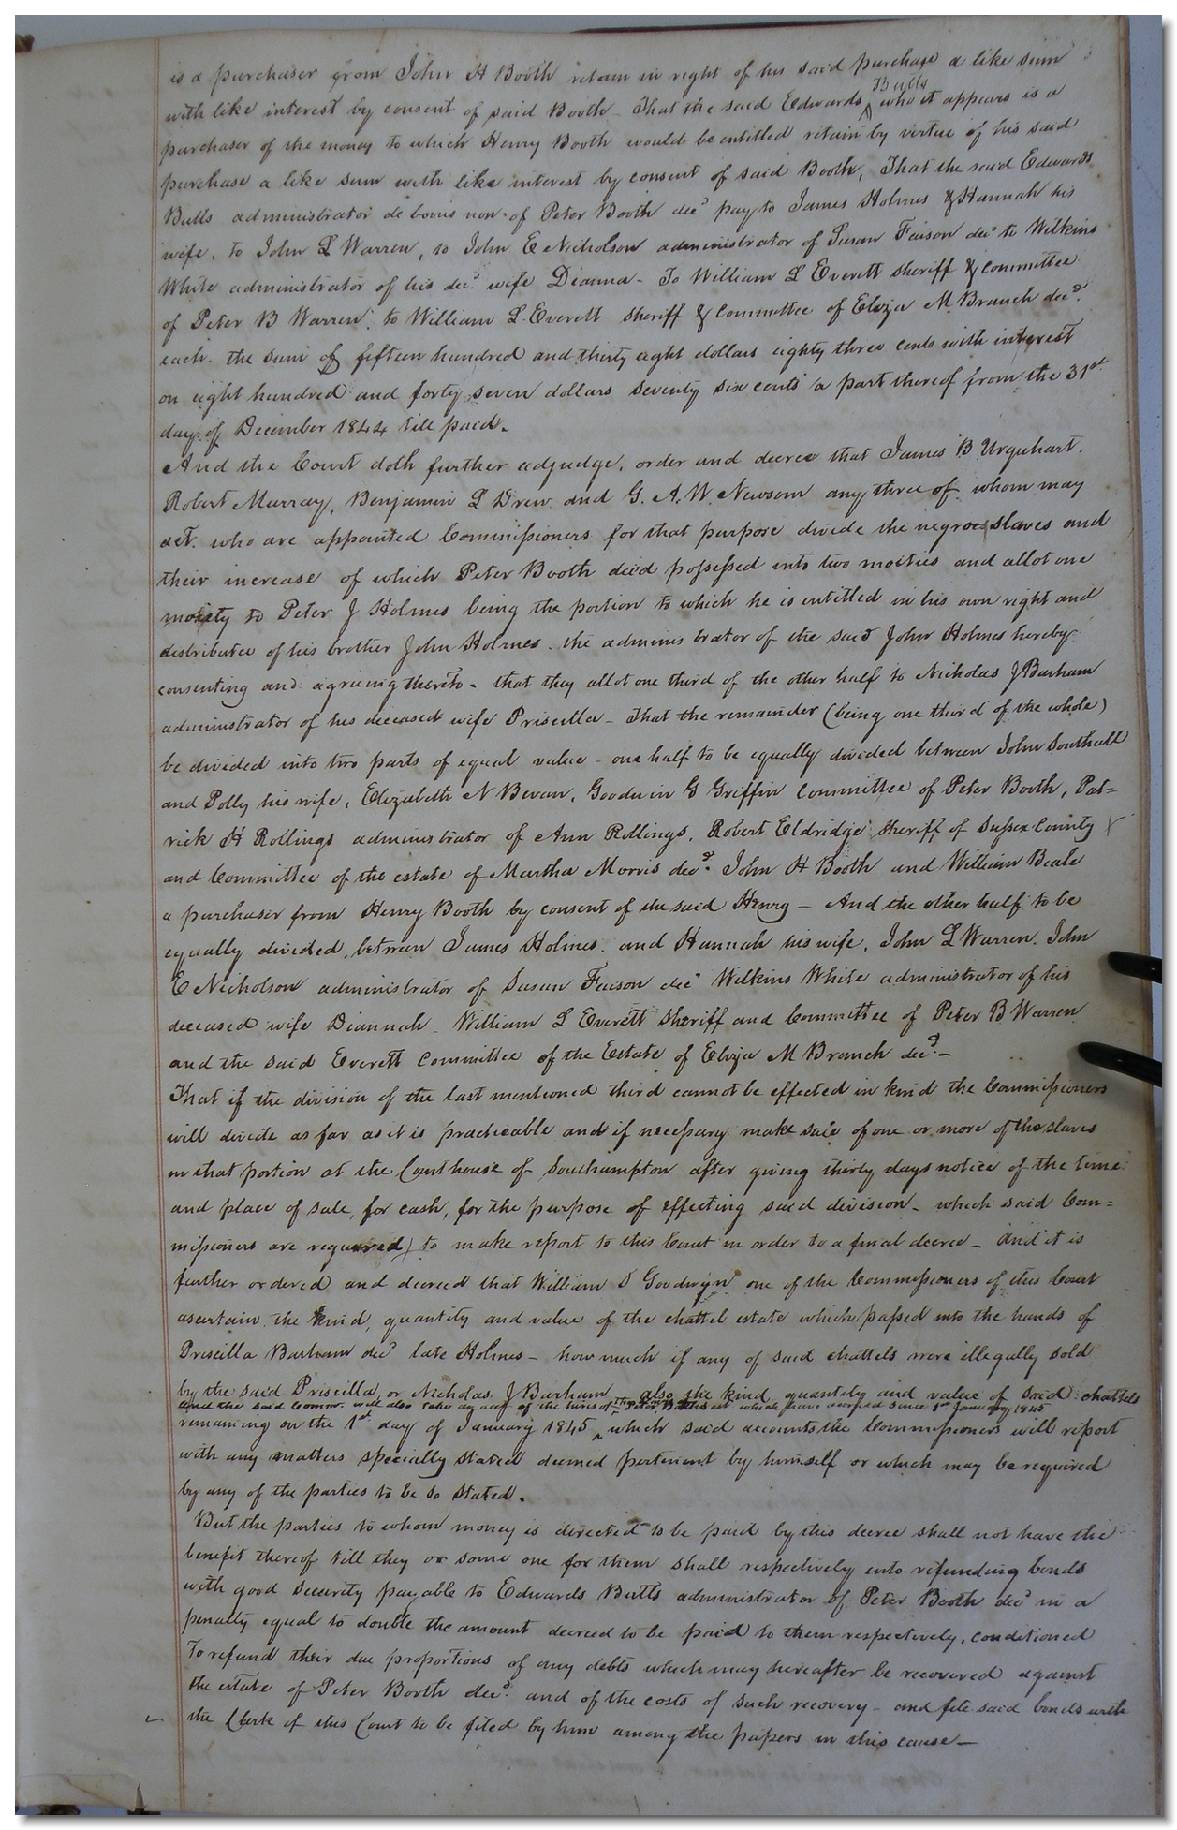 is a purchaser from John H Booth retain in right of his said purchase a like sum
with like interest by consent of said Booth - That the said Edwards Butts who it appears is a
purchaser of the money to which Henry Booth would be entitled retain by virtue of his said
purchase a like sum with like interest by consent of said Booth, That the said Edwards
Butts administrator de bonis non of Peter Booth decd pay to James Holmes & Hannah his
wife, to John L Warren, to John E Nicholson administrator of Susan Faison decd to Wilkins
White administrator of his decd wife Dianna - To William L Everett sheriff & Committee
of Peter B Warren, to William L Everett sheriff & Committee of Eliza M. Branch decd.
each the sum of fifteen hundred and thirty eight dollars eighty three cents with interest
on eight hundred and forty seven dollars seventy six cents a part thereof from the 31st
day of December 1844 till paid.
And the Court doth further adjudge, order and decree that James B Urquhart.
Robert Murray, Benjamin L Drew and G. A. W. Newsom any three of whom may
act. who are appointed Commissioners for that purpose divide the negroe slaves and
their increase of which Peter Booth died possessed into two moities and allot one
moiety to Peter J Holmes being the portion to which he is entitled in his own right and
distributee of his brother John Holmes. the administrator of the said John Holmes hereby
consenting and agreeing thereto - that they allot one third of the other half to Nicholas J Barham
administrator of his deceased wife Priscilla - That the remainder (being one third of the whole)
be divided into two parts of equal value - one half to be equally divided between John Southall
and Polly his wife, Elizabeth N Bevan, Goodwin G Griffin Committee of Peter Booth, Pat=
rick H Rollings administrator of Ann Rollings, Robert Eldridge sheriff of Sussex County
and Committee of the estate of Martha Morris decd. John H Booth and William Beale
a purchaser from Henry Booth by consent of the said Henry - And the other half to be
equally divided between James Holmes and Hannah his wife, John L Warren. John
E Nicholson administrator of Susan Faison decd Wilkins White administrator of his
deceased wife Diannah. William L Everett sheriff and Committee of Peter B Warren
and the said Everett Committee of the Estate of Eliza M Branch decd. -
That if the division of the last mentioned third cannot be effected in kind the Commissioners
will divide as far as it is practicable and if necessary make sale of one or more of the slaves
in that portion at the Courthouse of Southampton after giving thirty days notice of the time
and place of sale, for cash, for the purpose of effecting said division - which said Com=
missioners are required to make report to this Court in order to a final decree - And it is
further ordered and decreed that William S Goodwyn one of the Commissioners of this Court
ascertain the kind, quantity and value of the chattel estate which passed into the hands of
Priscilla Barham decd late Holmes - how much if any of said chattels were illegally sold
by the said Priscilla, or Nicholas J Barham also the kind quantity and value of said chattels
and the said Commr. will also take an acct of the hires of the which have accrued since 1st January 1845
remaining on the 1st day of January 1845, which said accounts the Commissioners will report
with any matters specially stated deemed pertinent by himself or which may be required
by any of the parties to be so stated.
But the parties to whom money is directed to be paid by this decree shall not have the
benefit thereof till they or some one for them shall respectively into refunding bonds
with good security payable to Edwards Butts administrator of Peter Booth decd in a
penalty equal to double the amount decreed to be paid to them respectively, conditioned
To refund their due proportions of any debts which may hereafter be recovered against
the estate of Peter Booth decd. and of the costs of such recovery - and file said bonds with
the Clerk of this Court to be filed by him among the papers in this cause -